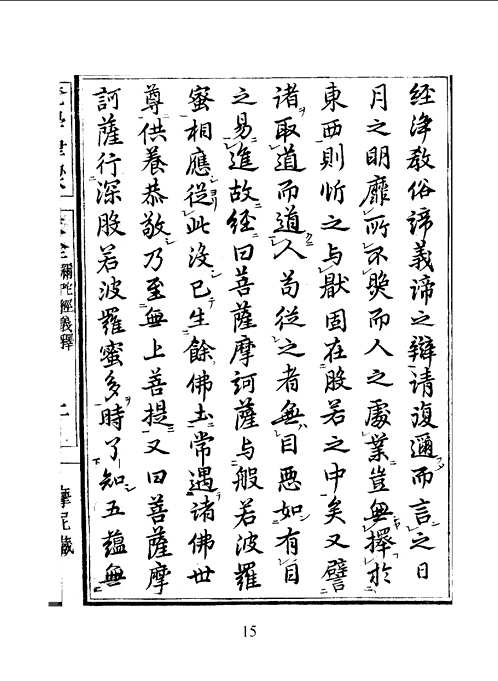 經淨教俗諦義諦之辯請復邇而言之日
月之明靡所不燭而人之處業豈無擇於
東西則忻之与猒固在般若之中矣又譬
諸取道而道人苟從之者無目惡如有目
之易進故經曰菩薩摩訶薩与般若波羅
蜜相應從此沒已生餘佛土常遇諸佛世
尊供養恭敬乃至無上菩提又曰菩薩摩
訶薩行深般若波羅蜜多時了知五蘊無
彌陀經義釋
摩尼藏
15